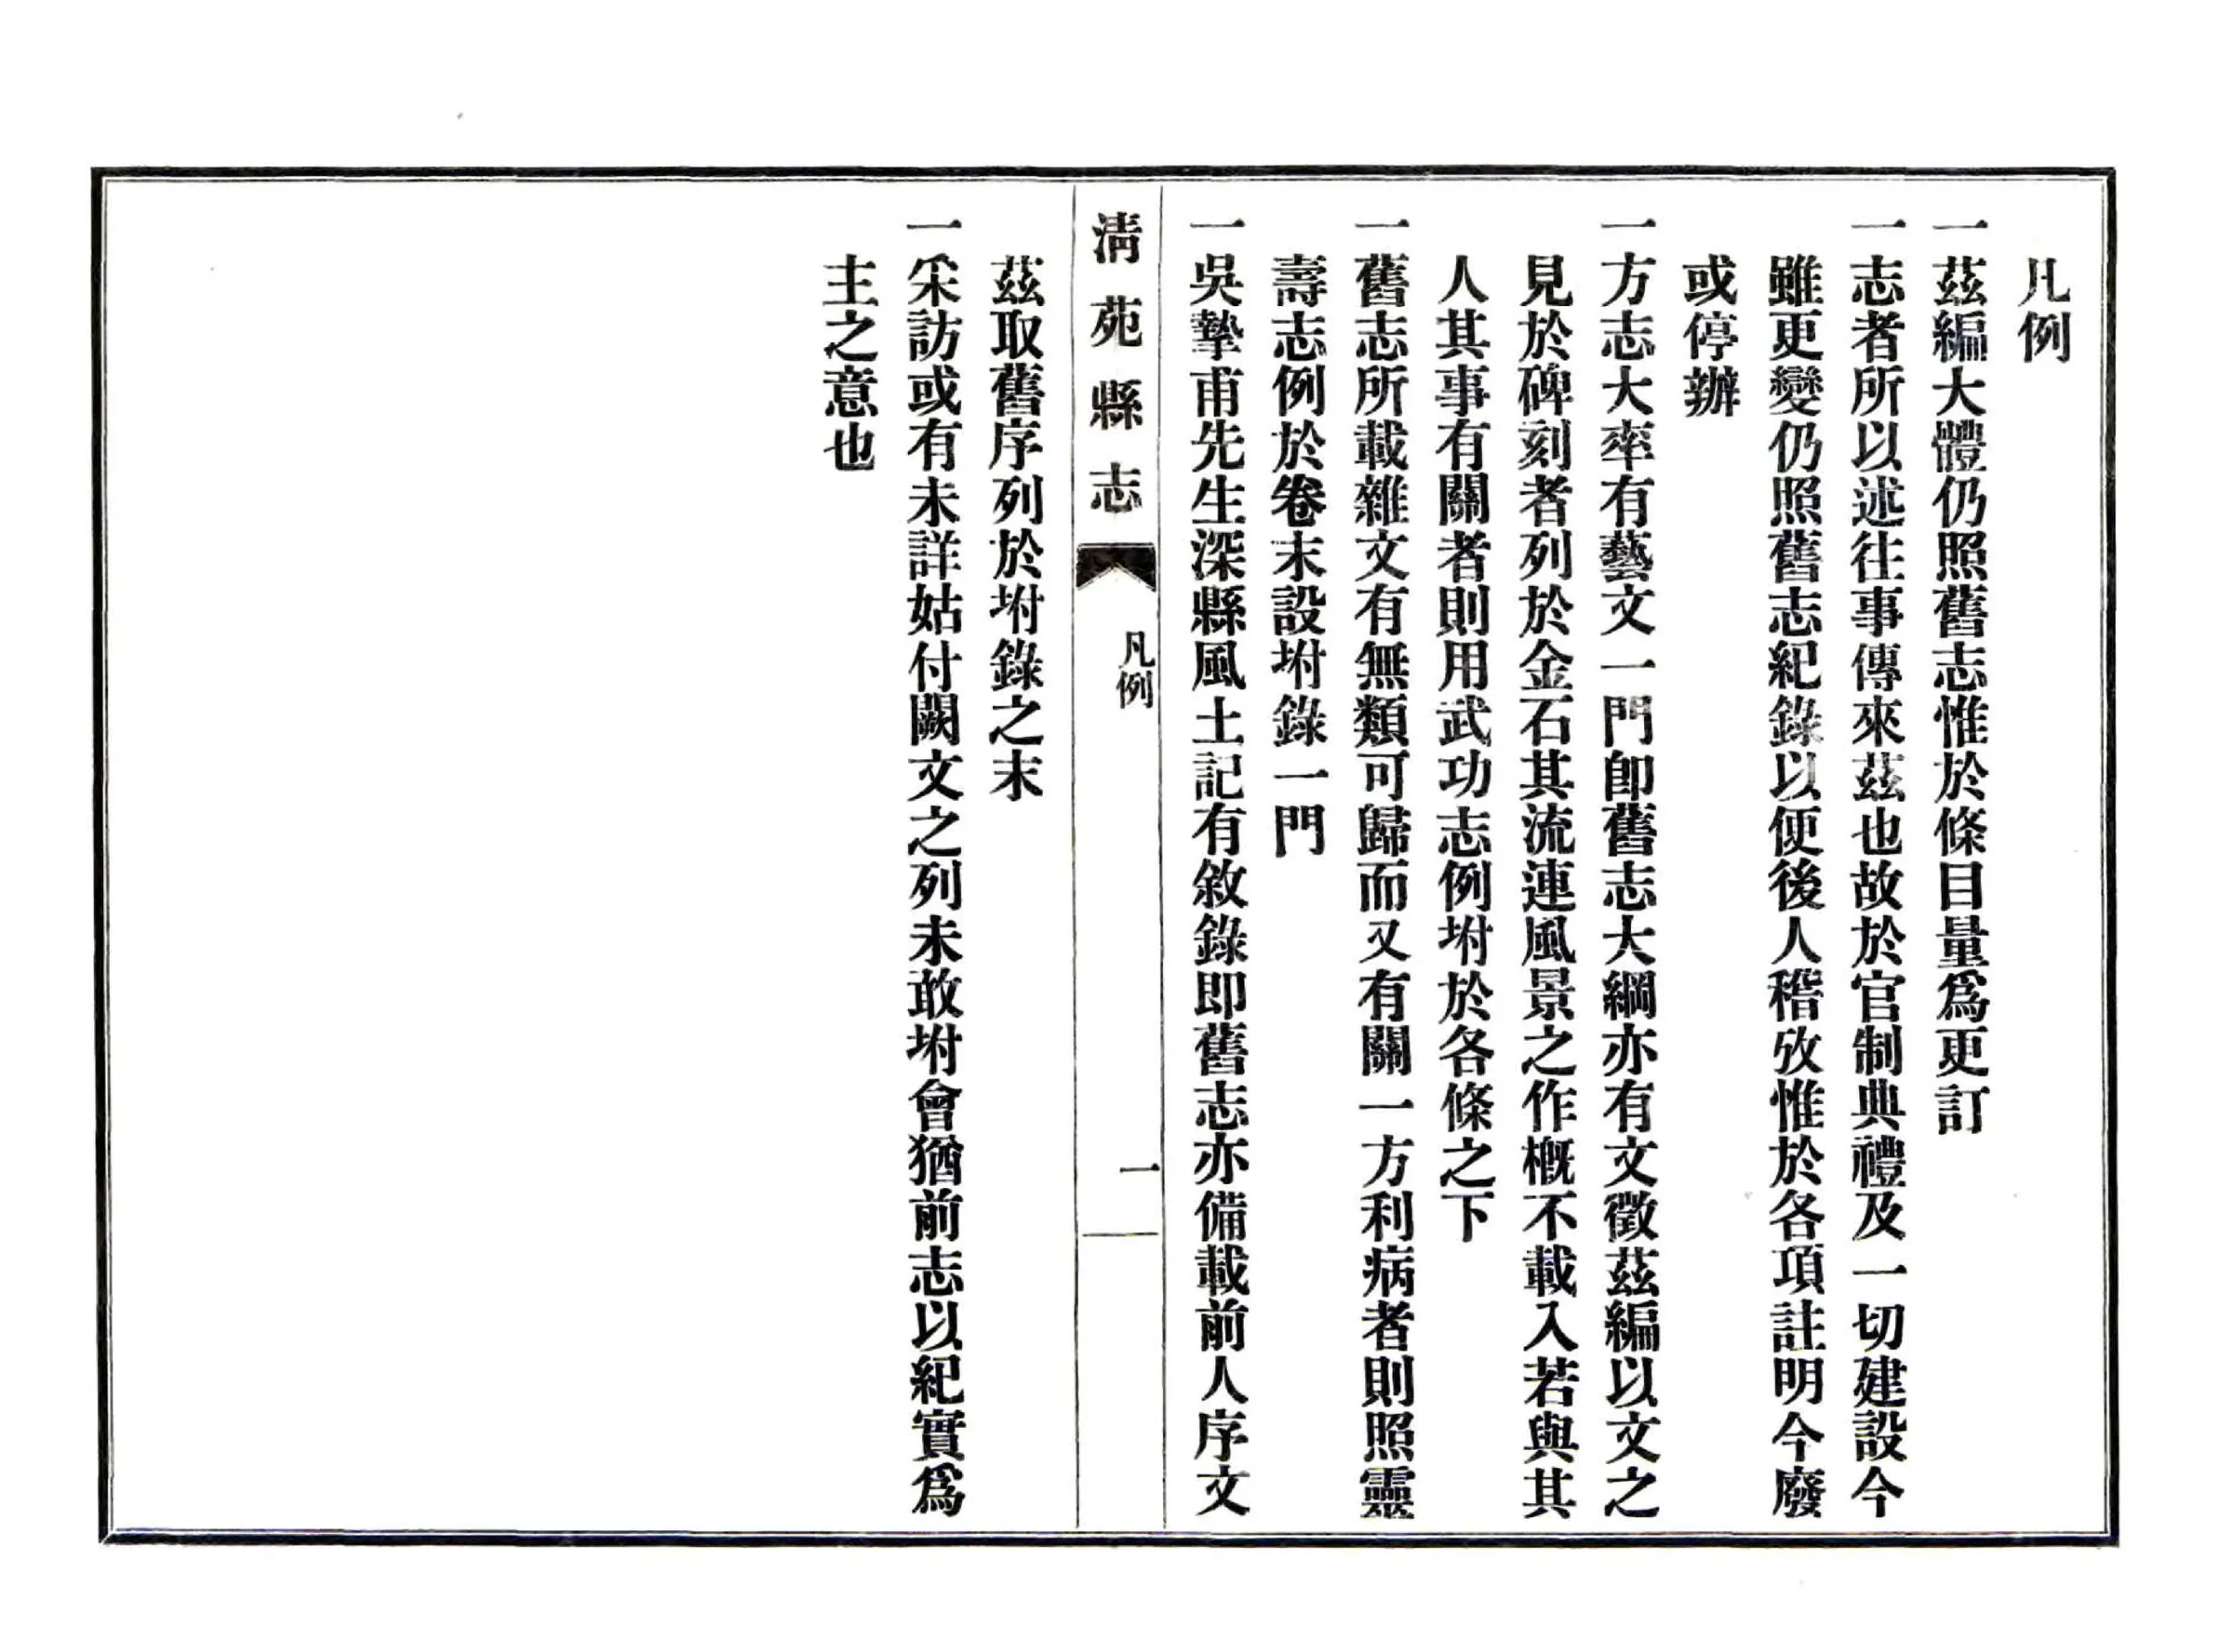 凡例
一茲編大體仍照舊志惟於條目量爲更訂
一志者所以述往事傳來茲也故於官制典禮及一切建設今
雖更變仍照舊志紀錄以便後人稽攷惟於各項註明今廢
或停辦
一方志大率有藝文一門卽舊志大綱亦有文徵茲編以文之
見於碑刻者列於金石其流連風景之作槪不載入若與其
人其事有關者則用武功志例坿於各條之下
一舊志所載雜文有無類可歸而又有關一方利病者則照靈
壽志例於卷末設坿錄一門
一吳摯甫先生深縣風土記有敘錄即舊志亦備載前人序文
清苑縣志
凡例
一
茲取舊序列於坿錄之末
一采訪或有未詳姑付闕文之列未敢坿會猶前志以紀實爲
主之意也